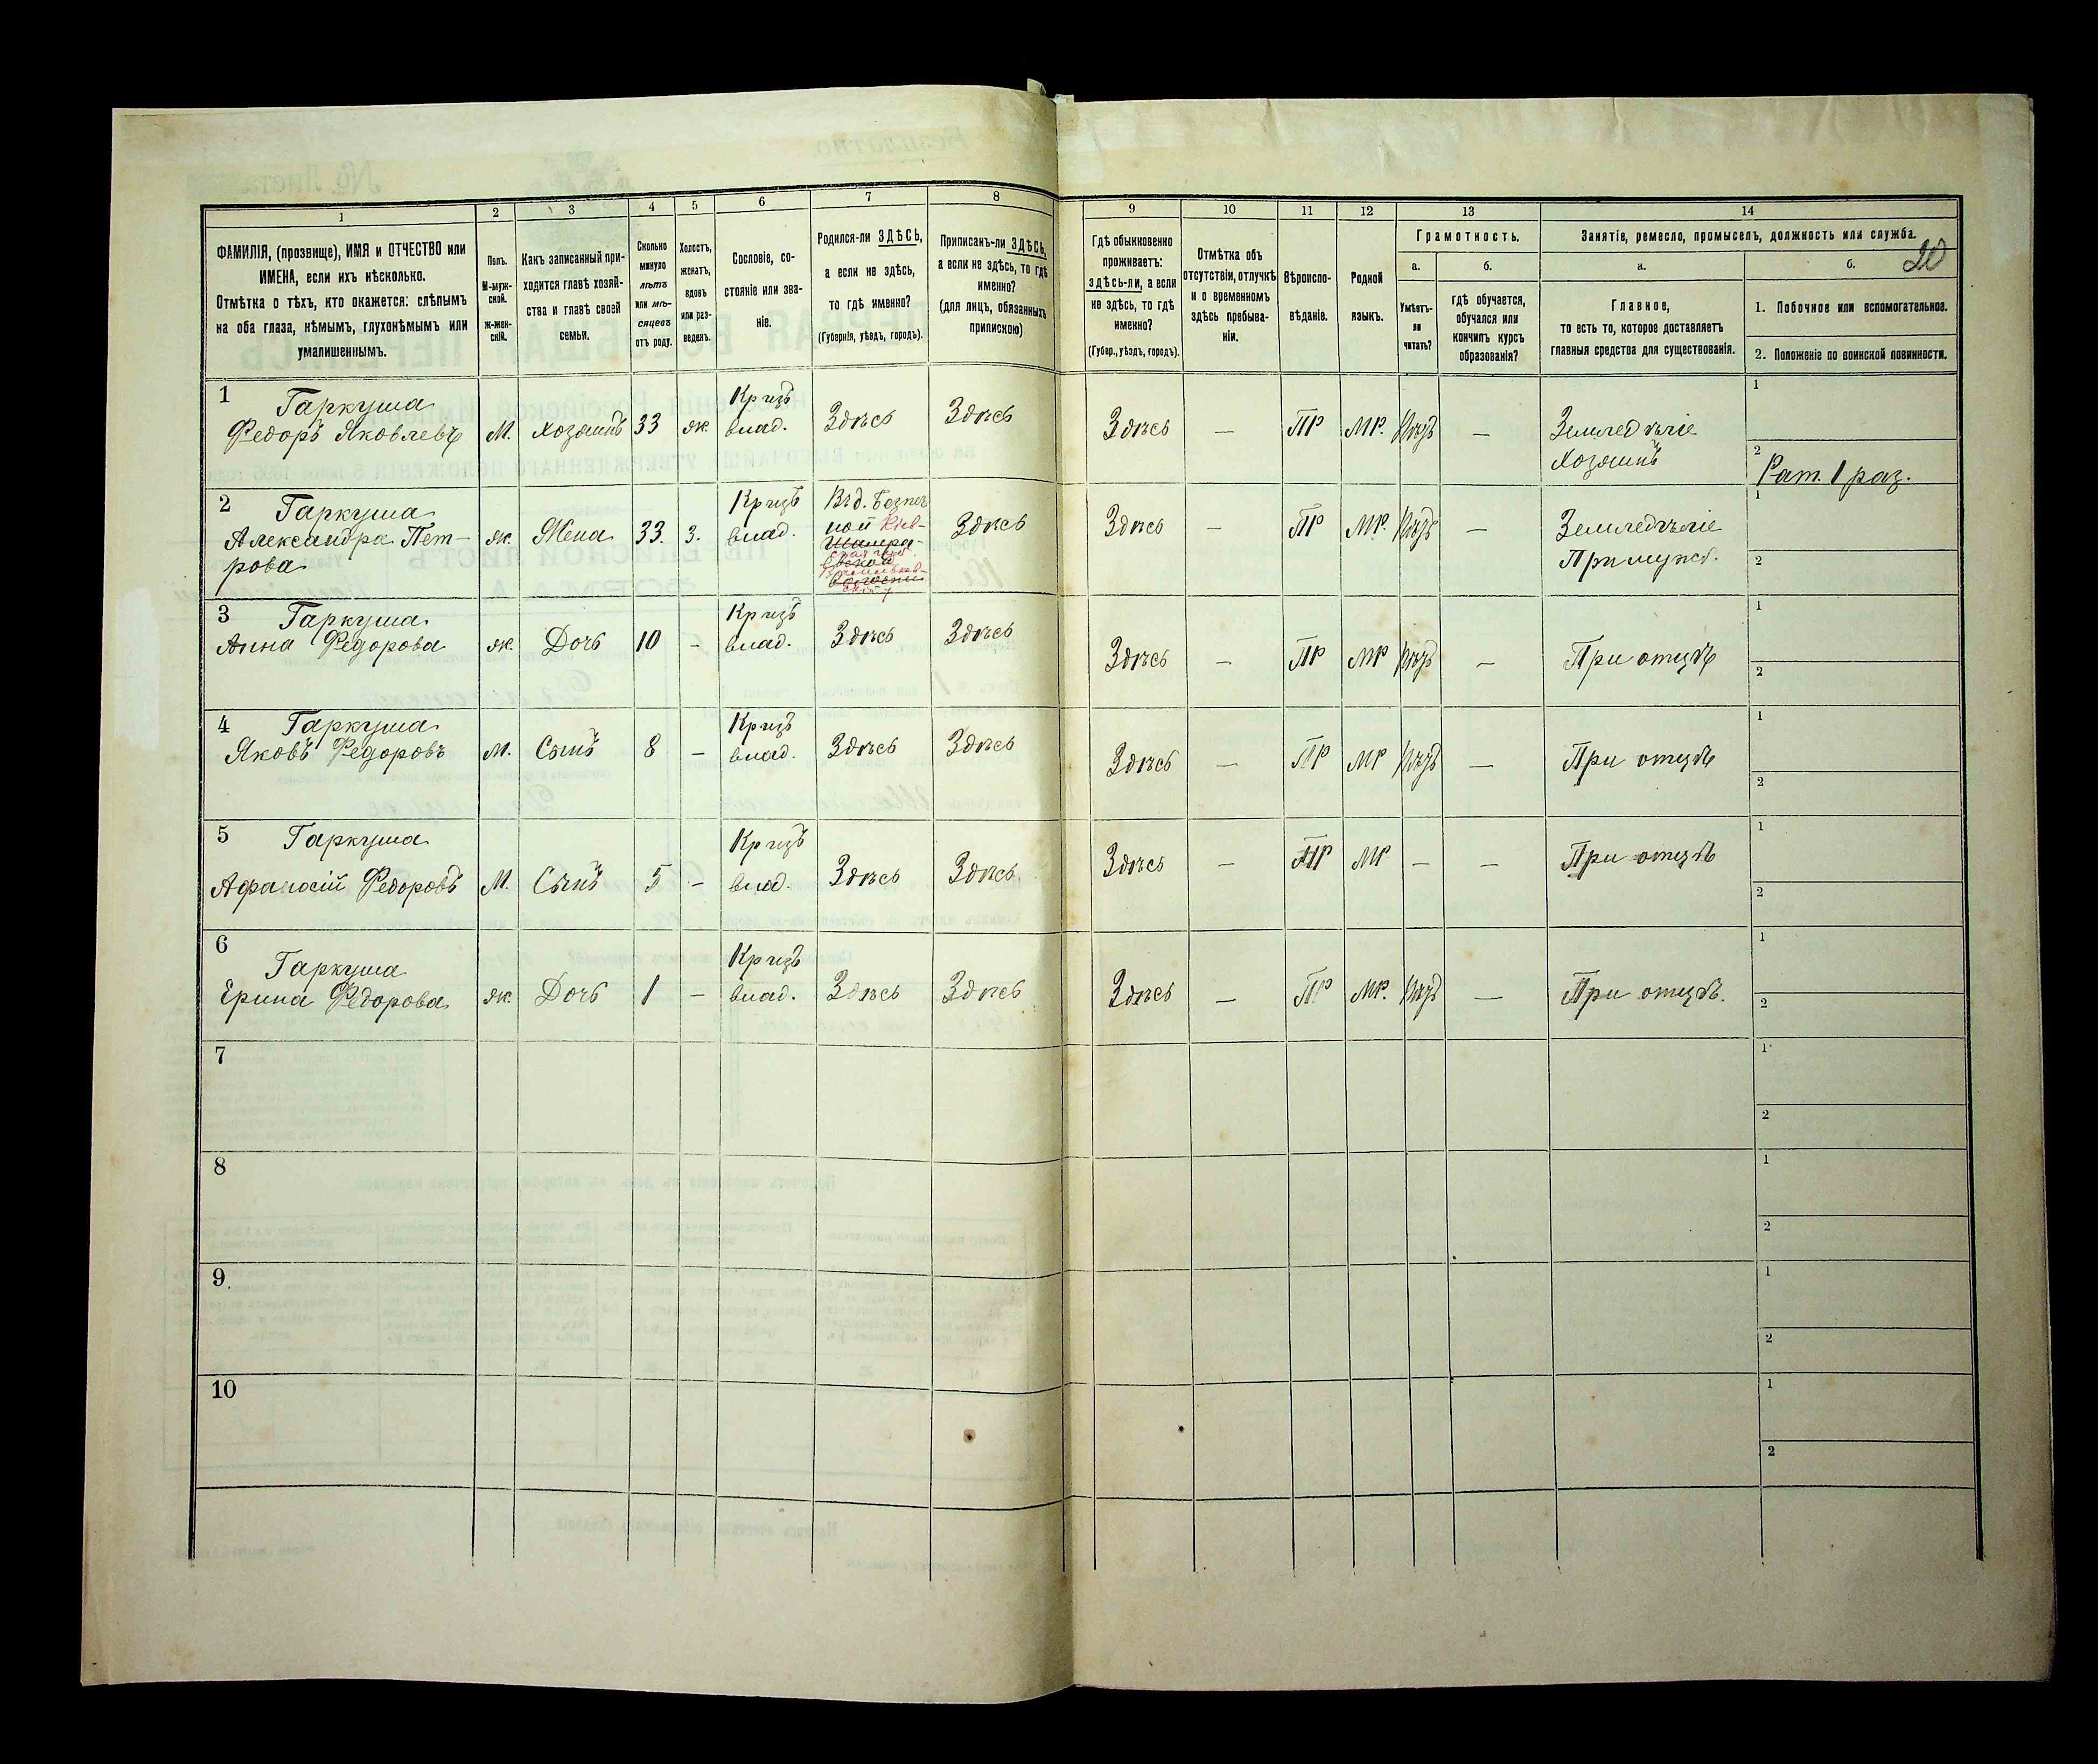 1 2 3 4 5 6 7 8 9 10 11 12 13 14
ФАМИЛІЯ, (прозвище), ИМЯ и ОТЧЕСТВО или
ИМЕНА, если ихъ нѣсколько.
Отмѣтка о тѣхъ, кто окажется: слѣпымъ
на оба глаза, нѣмымъ, глухонѣмымъ или
умалишеннымъ.
Полъ.
М-муж-
ской.
ж-жен-
скій.
Какъ записанный при-
ходится главѣ хозяй-
ства и главѣ своей
семьи.
Сколько
минуло
лѣтъ
или мѣ-
сяцевъ
отъ роду.
Холостъ,
женатъ,
вдовъ
или раз-
веденъ.
Сословіе, со-
стояніе или зва-
ніе.
Родился-ли ЗДѢСЬ,
а если не здѣсь,
то гдѣ именно?
(Губернія, уѣздъ, городъ).
Приписанъ-ли ЗДѢСЬ,
а если не здѣсь, то гдѣ
именно?
(для лицъ, обязанныхъ
припискою)
Гдѣ обыкновенно
проживаетъ:
ЗДѢСЬ-ли, а если
не здѣсь, то гдѣ
именно?
(Губер., уѣздъ, городъ).
Отмѣтка объ
отсутствіи, отлучкѣ
и о временномъ
здѣсь пребыва-
ніи.
Вѣроиспо-
вѣданіе.
Родной
языкъ.
Грамотность.
а.
Умѣетъ-
ли
читать?
б.
гдѣ обучается,
обучался или
кончилъ курсъ
образованія?
Занятіе, ремесло, промыселъ, должность или служба.
20
а.
Главное,
то есть то, которое доставляетъ
главныя средства для существованія.
б.
1. Побочное или вспомогательное.
2. Положеніе по воинской повинности.
1 Гаркуша
Федоръ Яковлевъ
М.
хозяинъ
33
ж.
Кр изъ
влад.
Здѣсь
Здѣсь
Здѣсь
—
ПР
МР.
—
Земледѣліе
Хозяинъ
1
2
Рат. 1 раз.
2 Гаркуша
Александра Пет-
рова
ж.
Жена
33.
з.
Кр изъ
влад.
Здѣсь
Здѣсь
—
ПР
МР.
—
Земледѣліе
При мужѣ.
1
2
3 Гаркуша.
Анна Федорова
ж.
Дочь
10
-
Кр изъ
влад.
Здѣсь
Здѣсь
Здѣсь
—
ПР
МР
—
При отцѣ
1
2
4 Гаркуша
Яковъ Федоровъ
М.
Сынъ
8
—
Кр изъ
влад.
Здѣсь
Здѣсь
Здѣсь
—
ПР
МР
—
При отцѣ
1
2
5 Гаркуша
Афанасій Федоровъ
М.
Сынъ
5
—
Кр изъ
влад.
Здѣсь
Здѣсь
Здѣсь
—
ПР
МР
—
—
При отцѣ
1
2
6
Гаркуша
Ерина Федорова
ж.
Дочь
1
—
Кр изъ
влад.
Здѣсь
Здѣсь
Здѣсь
—
ПР
МР.
—
При отцѣ.
1
2
7
1
2
8
1
2
9
1
2
10
1
2